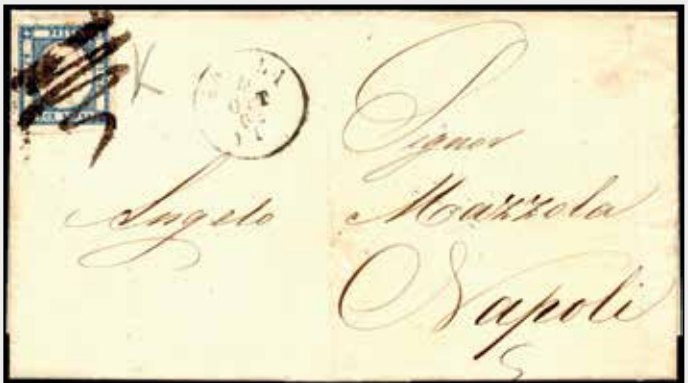 Signor
Angelo Mazzola
Napoli